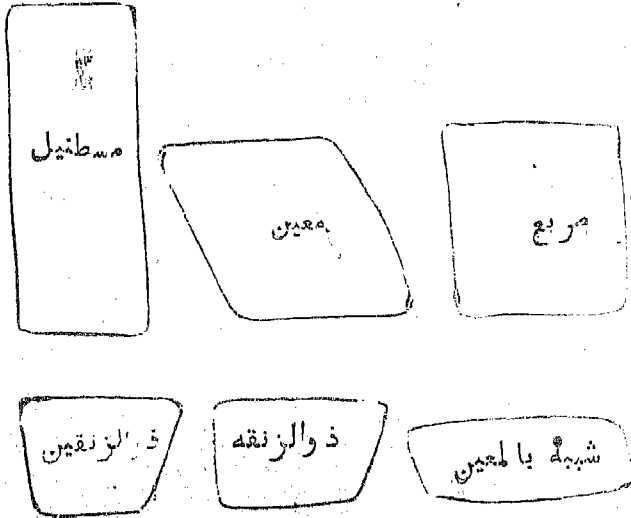 مربع
معين
مسطتيل
شبيه بالمعين
ذوالزنقه
ذوالزنقين